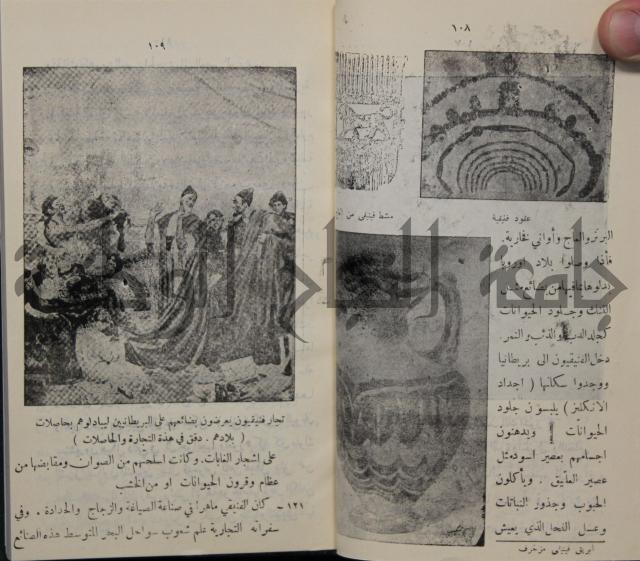 ١٠٨
عقود فنيقية
مشط فينيقي من
البرنز والعاج وأواني فخارية.
بلاد اوروبا
وجلود الحيوانات
والذئب والنمر.
دخل الفنيقيون الى بريطانيا
ووجدوا سكانها ( اجداد
الانكليز ) يلبسون جلود
الحيوانات ويدهنون
اجسامهم بعصير اسود مثل
عصير العليق . ويأكلون
الحبوب وجذور النباتات
وعسل النحل الذي يعيش
ابريق فينيقي مزخرف
١٠٩
تجار فنيقيون يعرضون بضائعهم على البريطانيين ليبادلوهم بحاصلات
( بلادهم . دقق في هذة التجارة والحاصلات )
على اشجار الغابات. وكانت اسلحتهم من الصوان ومقابضها من
عظام وقرون الحيوانات او من الخشب
١٢١ - كان الفنيقي ماهرا في صناعة الصياغة والزجاج والحدادة . وفي
سفراته التجارية علم شعوب سواحل البحر المتوسط هذه الصنائع